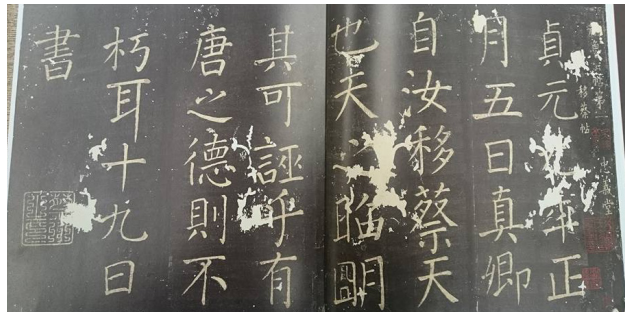 移蔡帖
貞元元年正
月五日真卿
自汝移蔡天
也天之昭明
其可誣乎有
唐之德則不
朽耳十九日
書